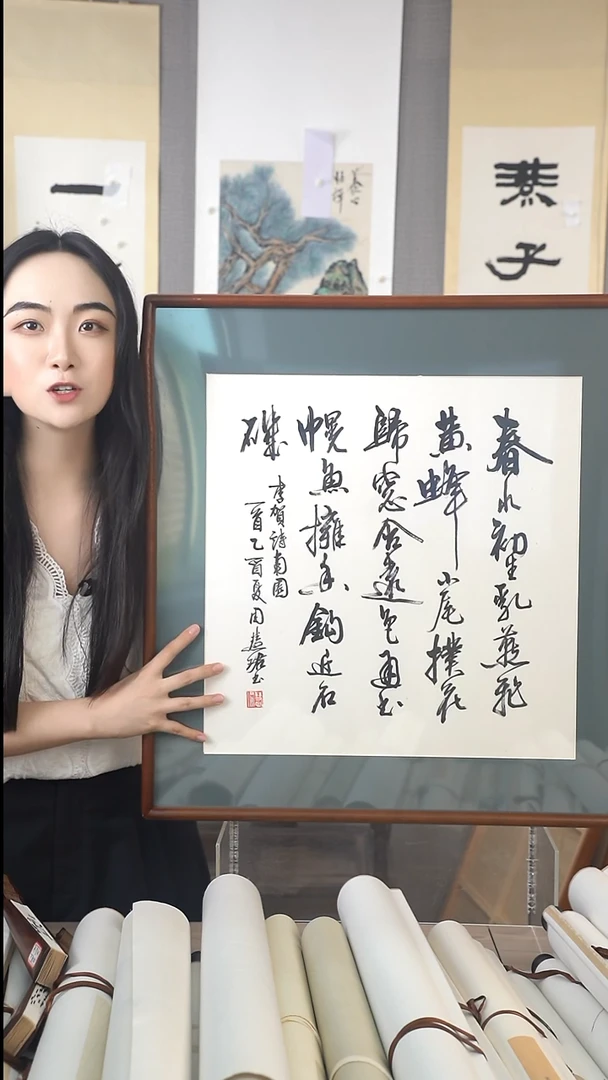 燕子
一
春水初生乳燕飛
黄蜂小尾撲花
歸窓含遠色通书
幌魚擁香鈎近石
磯
李賀詩南園
一首乙酉夏周慧珺书